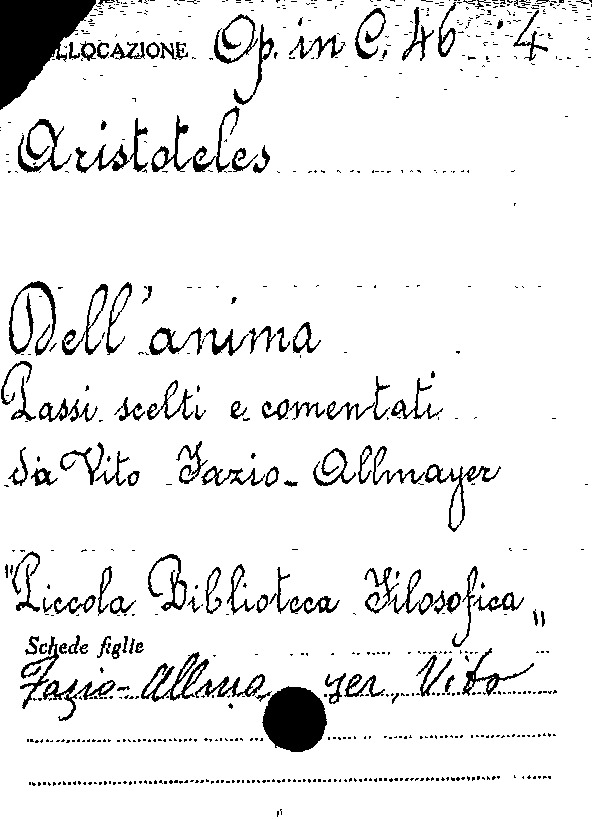 LLOCAZIONE Op. in C. 46 . 4
Aristoteles
Dell'anima
Passi scelti e comentati
da Vito Fazio-Allmayer
"Piccola Biblioteca Filosofica"
Schede figlie
Fazio-Allmayer, Vito